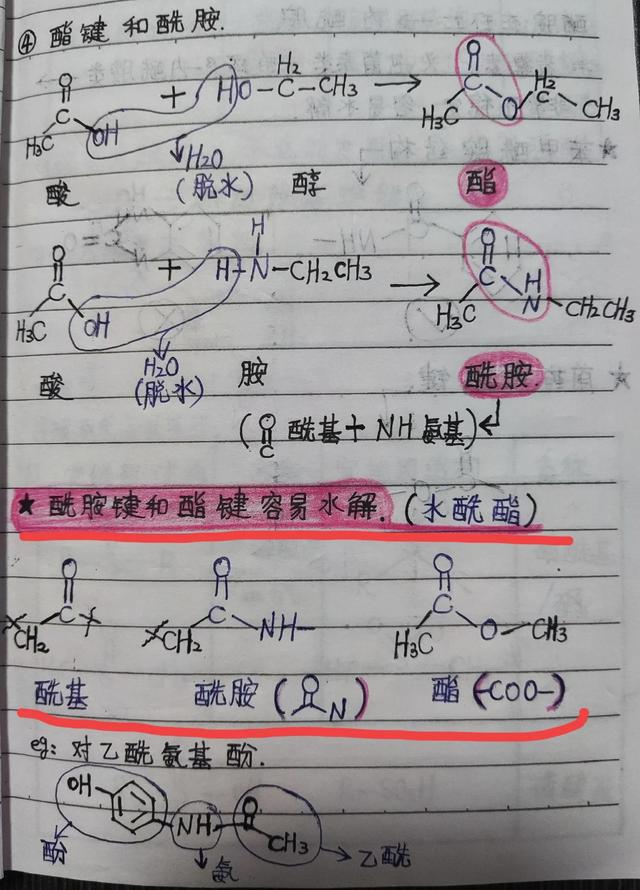 ④ 酯键和酰胺.
O H₂
H₃C C OH + HO-C-CH₃ → H₃C C O O C H₂ CH₃
H₂O
酸 (脱水) 醇 酯
O H O
H₃C C OH + H-N-CH₂CH₃ → H₃C C N H CH₂CH₃
H₂O
酸 (脱水) 胺 酰胺.
(O C 酰基+NH氨基)
★酰胺键和酯键容易水解.(水酰酯)
O O O
CH₂ C CH₂ C NH- H₃C C O CH₃
酰基 酰胺(O N) 酯(-COO-)
eg: 对乙酰氨基酚.
OH NH O CH₃
酚 氨 乙酰